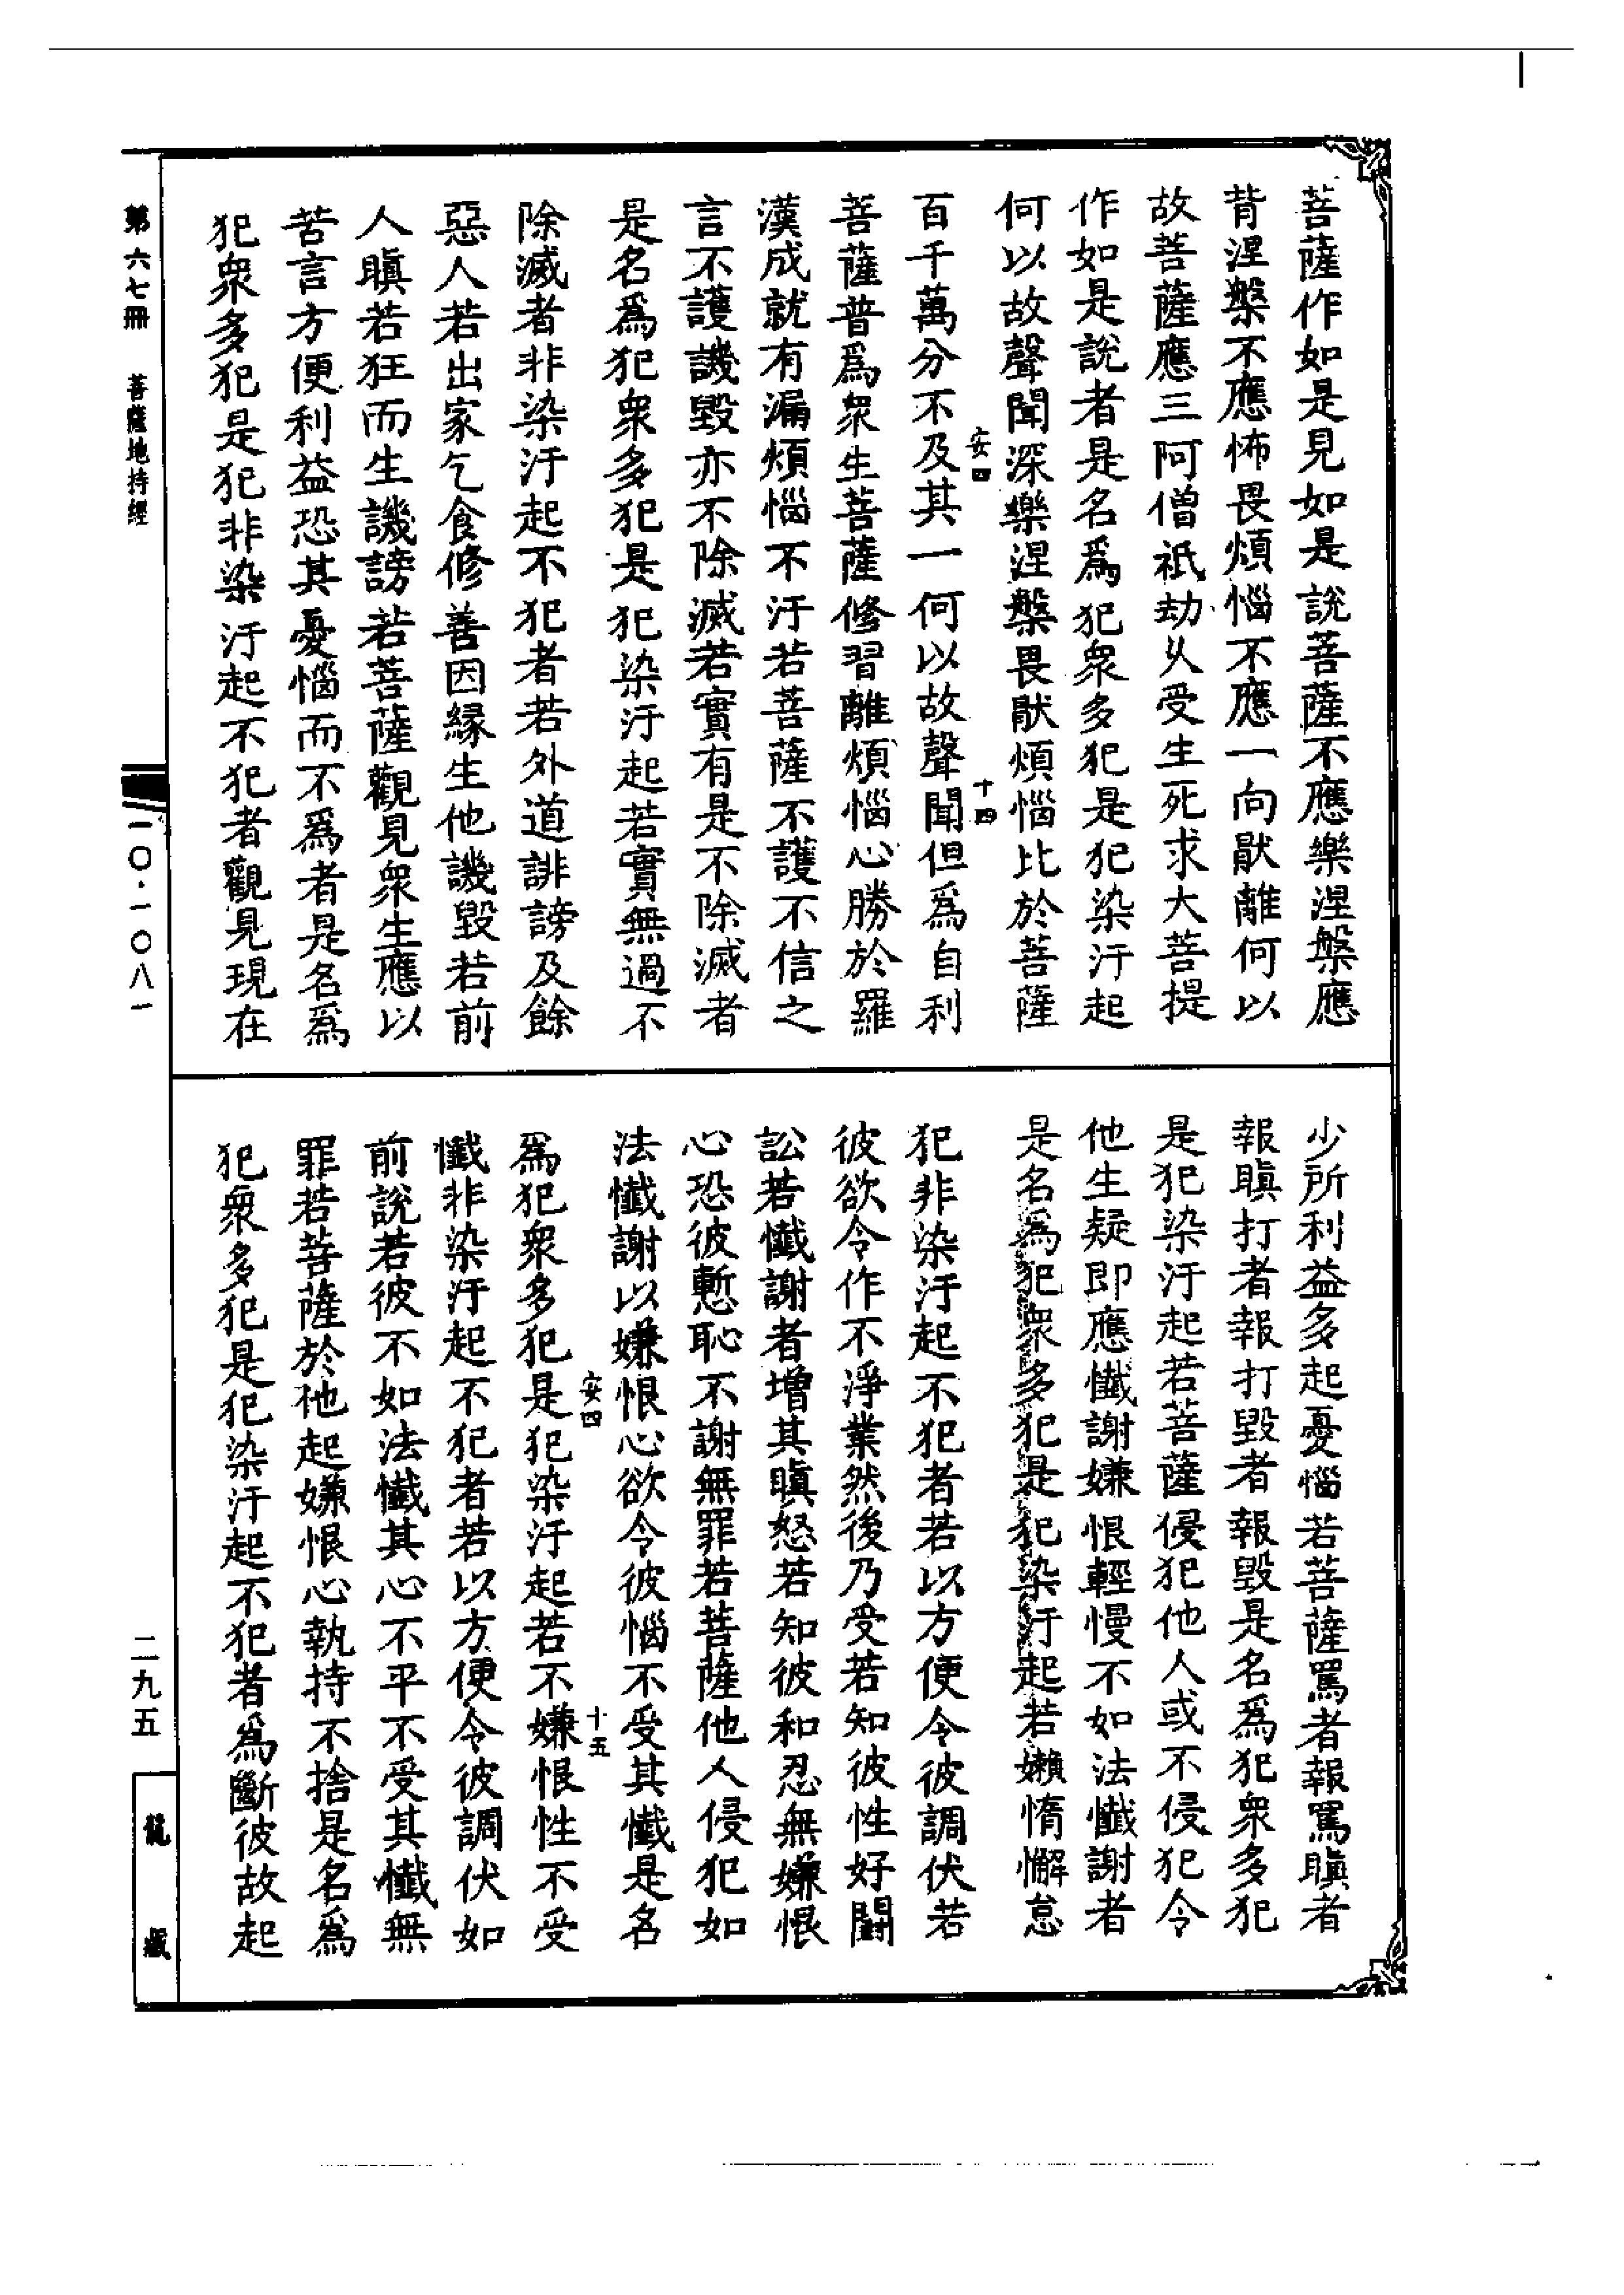 菩薩作如是見如是說菩薩不應樂涅槃應
背涅槃不應怖畏煩惱不應一向厭離何以
故菩薩應三阿僧祇劫久受生死求大菩提
作如是說者是名爲犯衆多犯是犯染汙起
何以故聲聞深樂涅槃畏猒煩惱比於菩薩
安四
十四
百千萬分不及其一何以故聲聞但爲自利
菩薩普爲衆生菩薩修習離煩惱心勝於羅
漢成就有漏煩惱不汙若菩薩不護不信之
言不護譏毀亦不除滅若實有是不除滅者
是名爲犯衆多犯是犯染汙起若實無過不
除滅者非染汙起不犯者若外道誹謗及餘
惡人若出家乞食修善因緣生他譏毀若前
人瞋若狂而生譏謗若菩薩觀見衆生應以
苦言方便利益恐其憂惱而不爲者是名爲
犯衆多犯是犯非染汙起不犯者觀見現在
少所利益多起憂惱若菩薩罵者報罵瞋者
報瞋打者報打毀者報毀是名爲犯衆多犯
是犯染汙起若菩薩侵犯他人或不侵犯令
他生疑即應懺謝嫌恨輕慢不如法懺謝者
是名爲犯衆多犯是犯染汙起若嬾惰懈怠
犯非染汙起不犯者若以方便令彼調伏若
彼欲令作不淨業然後乃受若知彼性好鬪
訟若懺謝者增其瞋怒若知彼和忍無嫌恨
心恐彼慙恥不謝無罪若菩薩他人侵犯如
法懺謝以嫌恨心欲令彼惱不受其懺是名
安四
十五
爲犯衆多犯是犯染汙起若不嫌恨性不受
懺非染汙起不犯者若以方便令彼調伏如
前說若彼不如法懺其心不平不受其懺無
罪若菩薩於他起嫌恨心執持不捨是名爲
犯衆多犯是犯染汙起不犯者爲斷彼故起
第六七冊 菩薩地持經
一〇·一〇八一
二九五
龍藏